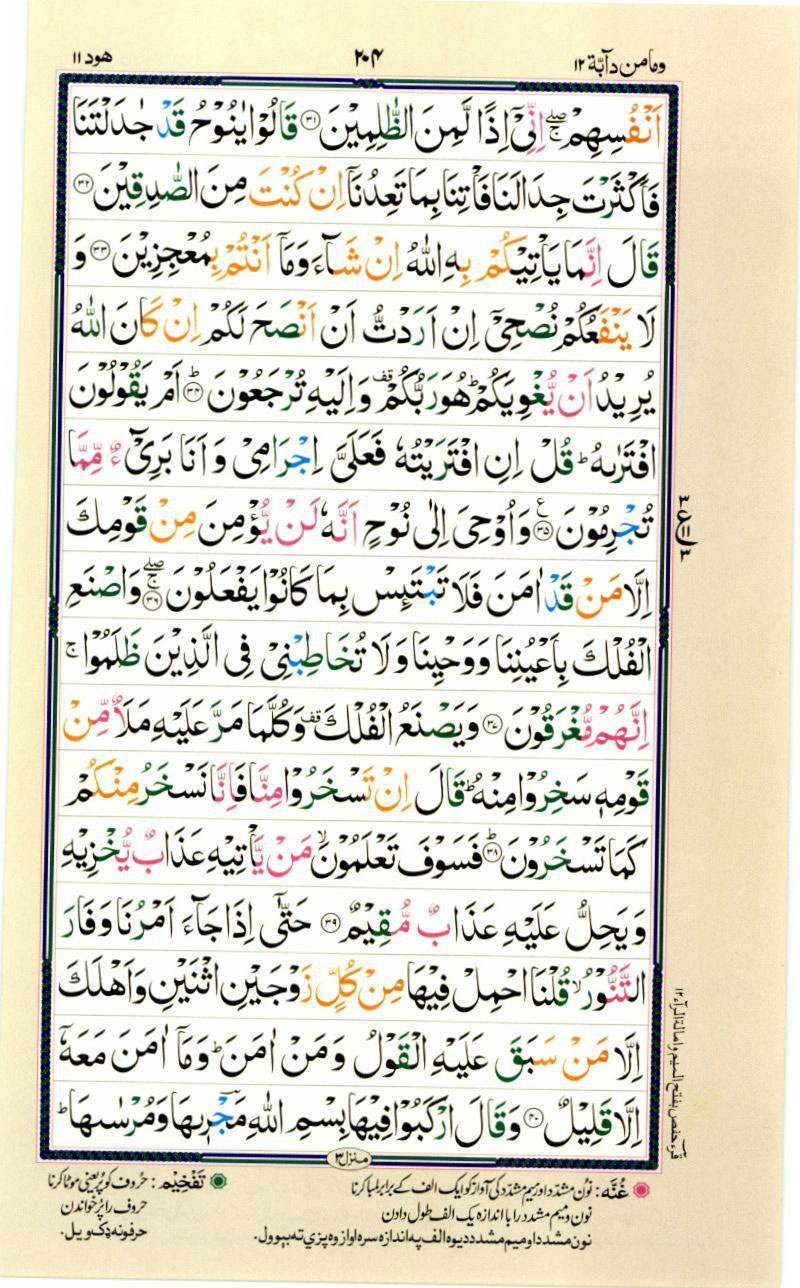 وما من دآبّة ١٢ ٢٠٤ هود ١١
اَنْفُسِهِمْ ۖۚ اِنِّیْۤ اِذًا لَّمِنَ الظّٰلِمِیْنَ ۝۳۱ قَالُوْا یٰنُوْحُ قَدْ جٰدَلْتَنَا
فَاَكْثَرْتَ جِدَالَنَا فَاْتِنَا بِمَا تَعِدُنَاۤ اِنْ كُنْتَ مِنَ الصّٰدِقِیْنَ ۝۳۲
قَالَ اِنَّمَا یَاْتِیْكُمْ بِهِ اللّٰهُ اِنْ شَآءَ وَمَاۤ اَنْتُمْ بِمُعْجِزِیْنَ ۝۳۳ وَ
لَا یَنْفَعُكُمْ نُصْحِیْۤ اِنْ اَرَدْتُّ اَنْ اَنْصَحَ لَكُمْ اِنْ كَانَ اللّٰهُ
یُرِیْدُ اَنْ یُّغْوِیَكُمْ ؕ هُوَ رَبُّكُمْ ۫ وَاِلَیْهِ تُرْجَعُوْنَ ۝۳۴ؕ اَمْ یَقُوْلُوْنَ
افْتَرٰىهُ ؕ قُلْ اِنِ افْتَرَیْتُهٗ فَعَلَیَّ اِجْرَامِیْ وَاَنَا بَرِیْٓءٌ مِّمَّا
تُجْرِمُوْنَ ۝۳۵ع وَاُوْحِیَ اِلٰی نُوْحٍ اَنَّهٗ لَنْ یُّؤْمِنَ مِنْ قَوْمِكَ
اِلَّا مَنْ قَدْ اٰمَنَ فَلَا تَبْتَىِٕسْ بِمَا كَانُوْا یَفْعَلُوْنَ ۝۳۶ۖۚ وَاصْنَعِ
الْفُلْكَ بِاَعْیُنِنَا وَوَحْیِنَا وَلَا تُخَاطِبْنِیْ فِی الَّذِیْنَ ظَلَمُوْا ۚ
اِنَّهُمْ مُّغْرَقُوْنَ ۝۳۷ وَیَصْنَعُ الْفُلْكَ ۫ وَكُلَّمَا مَرَّ عَلَیْهِ مَلَاٌ مِّنْ
قَوْمِهٖ سَخِرُوْا مِنْهُ ؕ قَالَ اِنْ تَسْخَرُوْا مِنَّا فَاِنَّا نَسْخَرُ مِنْكُمْ
كَمَا تَسْخَرُوْنَ ۝۳۸ؕ فَسَوْفَ تَعْلَمُوْنَ ۙ مَنْ یَّاْتِیْهِ عَذَابٌ یُّخْزِیْهِ
وَیَحِلُّ عَلَیْهِ عَذَابٌ مُّقِیْمٌ ۝۳۹ حَتّٰۤی اِذَا جَآءَ اَمْرُنَا وَفَارَ
التَّنُّوْرُ ۙ قُلْنَا احْمِلْ فِیْهَا مِنْ كُلٍّ زَوْجَیْنِ اثْنَیْنِ وَاَهْلَكَ
اِلَّا مَنْ سَبَقَ عَلَیْهِ الْقَوْلُ وَمَنْ اٰمَنَ ؕ وَمَاۤ اٰمَنَ مَعَهٗۤ
اِلَّا قَلِیْلٌ ۝۴۰ وَقَالَ ارْكَبُوْا فِیْهَا بِسْمِ اللّٰهِ مَجْؔرٖىهَا وَمُرْسٰىهَا ؕ
٣ ع ١١ ٤
قرء حفص بفتح المیم وامالة الرآء ١٢
منزل ٣
غُنّه: نون مشدّد اور میم مشدّد کی آواز کو ایک الف کے برابر لمبا کرنا
نون و میم مشدد را با اندازه یک الف طول دادن
نون مشدد او میم مشدد د یوه الف په اندازه سره اواز وه پزي ته بپوول.
تَفْخِیْم: حروف کو پُر یعنی موٹا کرنا
حروف را پُر خواندن
حرفونه ډک ویل.